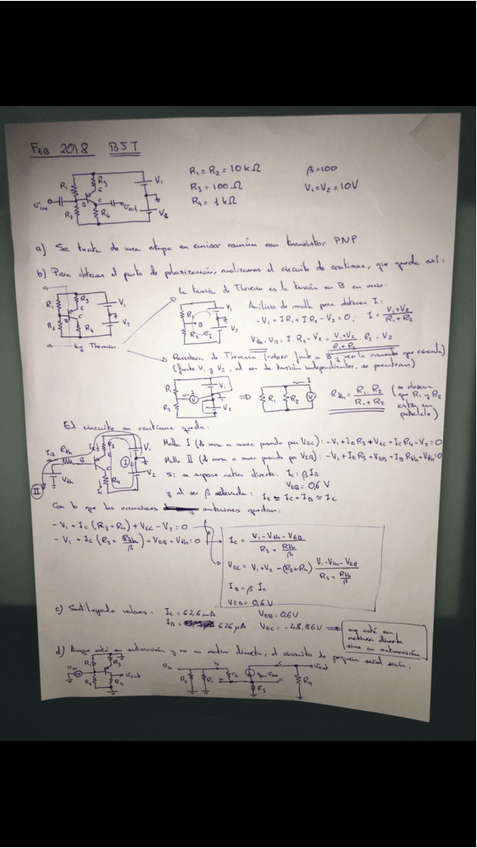 FEB 2018 BJT
R₁ = R₂ = 10 kΩ β = 100
R₃ = 100 Ω V₁ = V₂ = 10V
R₄ = 1 kΩ
R₁ R₃ V₁
R₂ R₄ V₂
a) Se trata de una etapa en emisor común con transistor PNP
b) Para obtener el punto de polarización, analizamos el circuito de continua, que queda así:
La tensión de Thevenin es la tensión en B en vacío:
Análisis de malla para obtener I:
-V₁ + IR₁ + IR₂ - V₂ = 0, I = (V₁+V₂)/(R₁+R₂)
V_th = V_B = I·R₂ - V₂ = (V₁+V₂)/(R₁+R₂) · R₂ - V₂
Eq Thevenin
Resistencia de Thevenin
(Junto V₁ y V₂, al ser de tensión independientes, se
⇒ R₁ R₂ V R_th = (R₁·R₂)/(R₁+R₂) (se observa
que R₁ y R₂
están en
paralelo)
El circuito en continua queda:
Malla I : -V₁ + I_E R₃ + V_EC + I_C R₄ - V₂ = 0
Malla II : -V₁ + I_E R₃ + V_EB + I_B R_th + V_th = 0
Si se supone activa directa: I_C = β I_B
V_EB = 0,6 V
y al ser β elevada: I_E = I_C + I_B ≈ I_C
Con lo que las ecuaciones anteriores quedan:
-V₁ + I_C (R₃ + R₄) + V_EC - V₂ = 0
-V₁ + I_C (R₃ + R_th/β) + V_EB + V_th = 0
I_C = (V₁ - V_th - V_EB)/(R₃ + R_th/β)
V_EC = V₁ + V₂ - (R₃ + R₄) (V₁ - V_th - V_EB)/(R₃ + R_th/β)
V_EB = 0,6 V
c) Sustituyendo valores: I_C = 62,6 mA V_EB = 0,6V
I_B = 626 μA V_EC = -48,86V ⇒ no está en
activa directa
sino en saturación
d) Aunque está en saturación y no en activa directa, el circuito de pequeña señal sería: